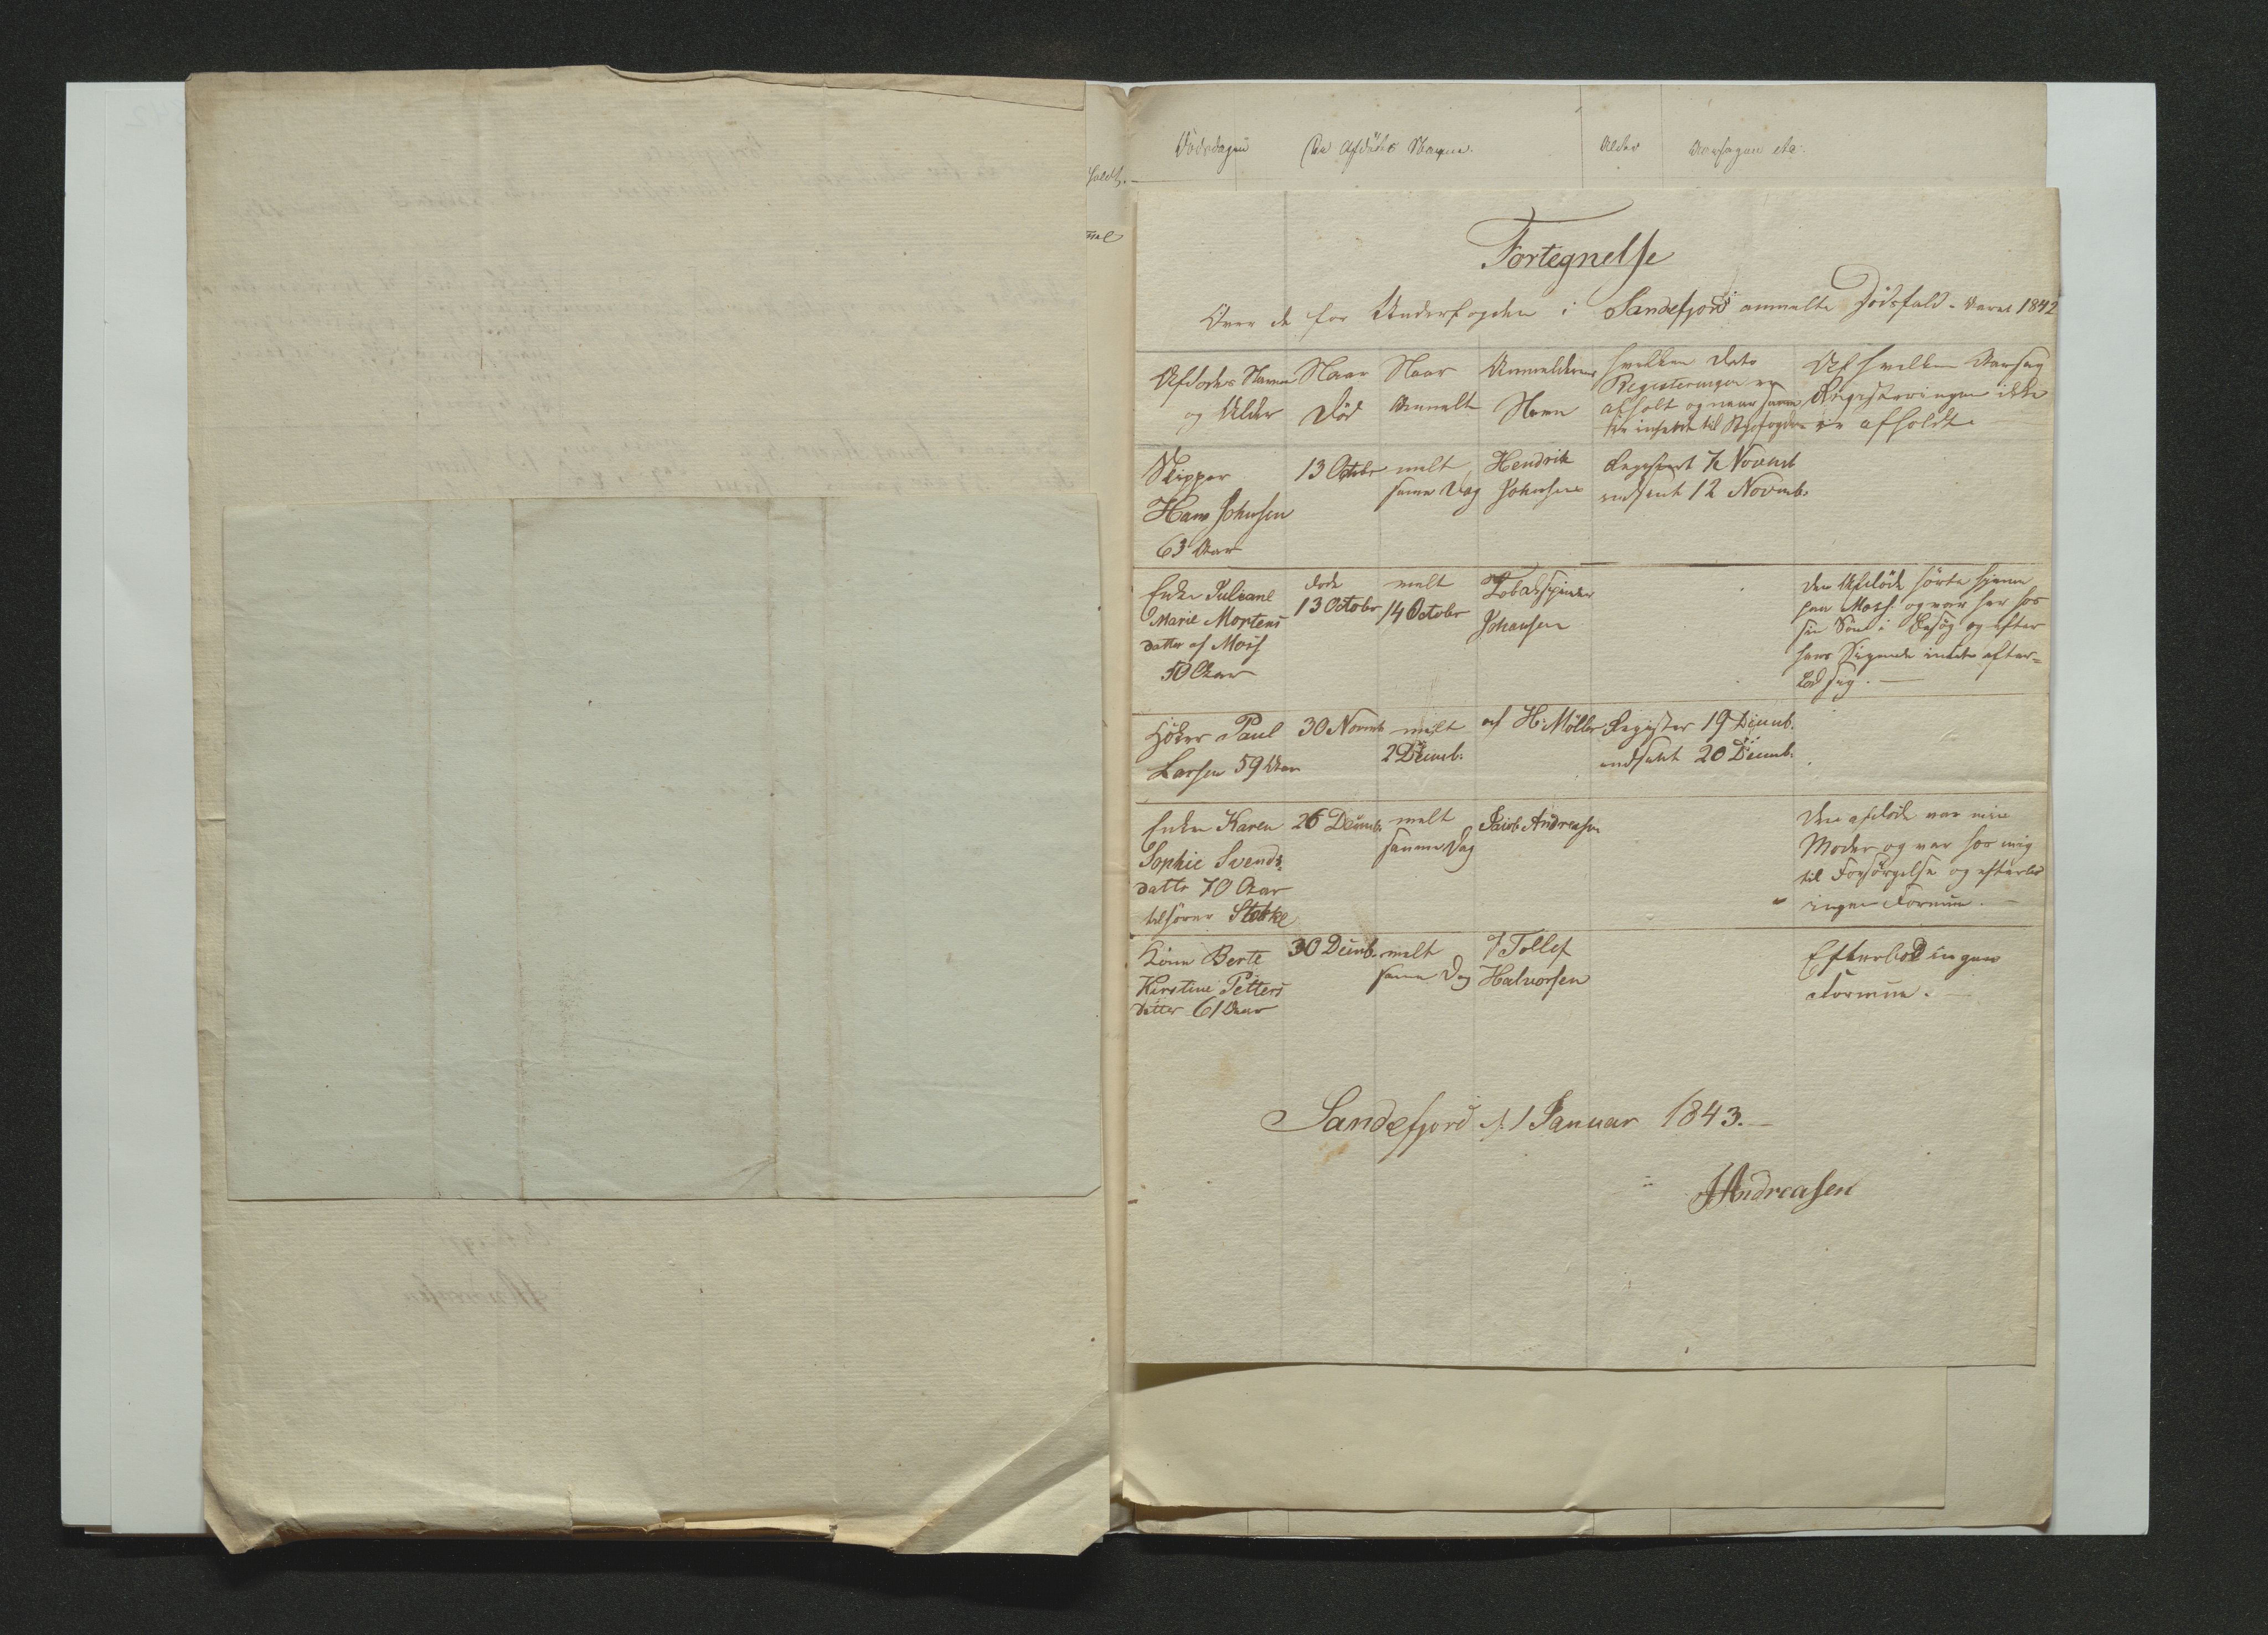 Dødsdagen De Afdødes Navne. Alder Aarsagen etc:
Fortegnelse
Over de for Underfogden i Sandefjord anmelte Dødsfald. Aaret 1842
Afdødes Navne og Alder
Naar Død
Naar Anmelt
Anmelderens Navn
hvilken Dato
Registeringen er
afholt og naar samme
er indsendt til Byefogden
Af hvilken Aarsag
Registeringen ikke
er afholdt.
Skipper
Hans Johnsen
63 Aar
13 Octobr
melt
samme Dag
Hendrik
Johnsen
Registert 7 Novemb
indsent 12 Novemb.
Enke Juliane
Marie Mortens
datter af Moss
50 Aar
døde
13 Octobr
melt
14 Octobr
Tobakspinder
Johansen
Den Afdøde hørte hjemme
paa Moss og var her hos
sin Søn i Besøg og efter
hans Sigende intet efter=
lod sig.
Høker Paul
Larsen 59 Aar
30 Novemb
melt
2 Decemb.
af H. Møller
Register 19 Decemb.
indsent 20 Decemb.
Enke Karen
Sophie Svends
datter 70 Aar
tilforn Stokke
26 Decemb.
melt
samme Dag
Jacob Andreasen
Den afdøde var min
Moder og var hos mig
til Forsørgelse og efterlod
ingen Formue.
Kone Berte
Kirstine Petters
Datter 61 Aar
30 Decemb.
melt
samme Dag
Tollef
Halvorsen
Efterlod ingen
Formue.
Sandefjord d. 1 Januar 1843.
JAndreasen